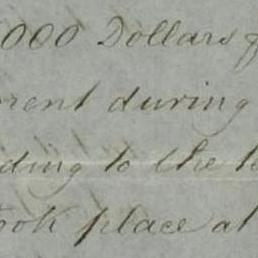 000 Dollars f
rent during
ding to the te
took place at